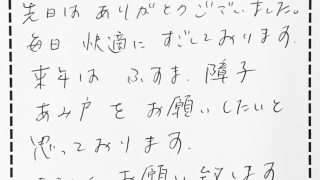 先日は ありがとうございました。
毎日 快適に すごしております.
来年は ふすま. 障子
あみ戸を お願いしたいと
思っております.
お願い致します